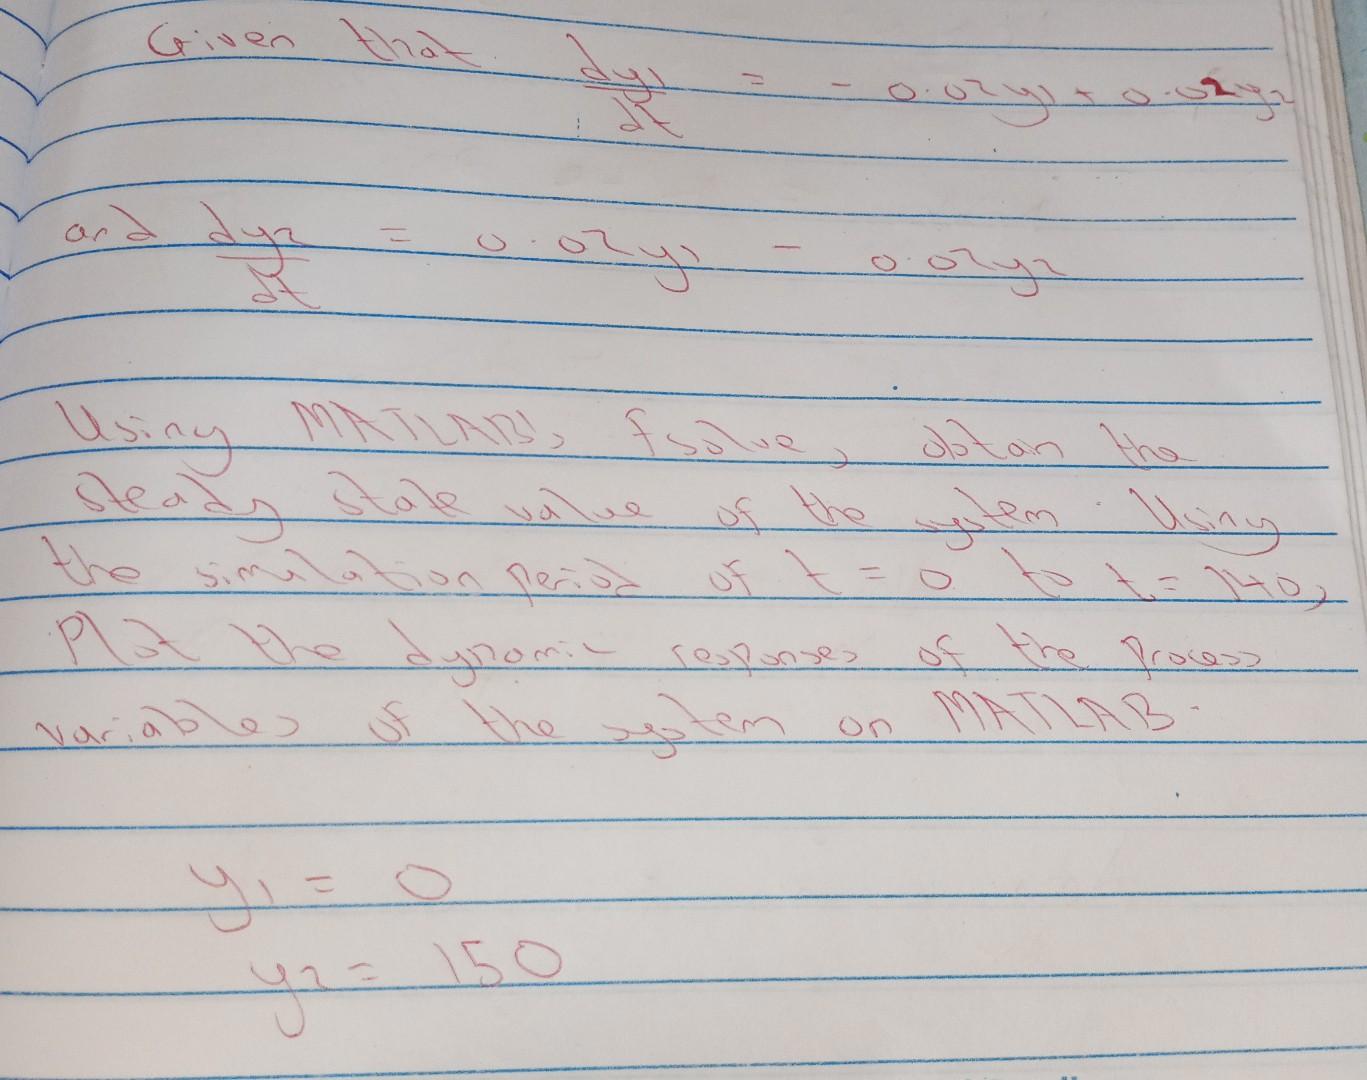 Given that dy1/dt = - 0.02y1 + 0.02y2
and dy2/dt = 0.02y1 - 0.02y2
Using MATLAB's fsolve, obtain the
steady state value of the system. Using
the simulation period of t = 0 to t = 140,
Plot the dynamic responses of the process
variables of the system on MATLAB.
y1 = 0
y2 = 150